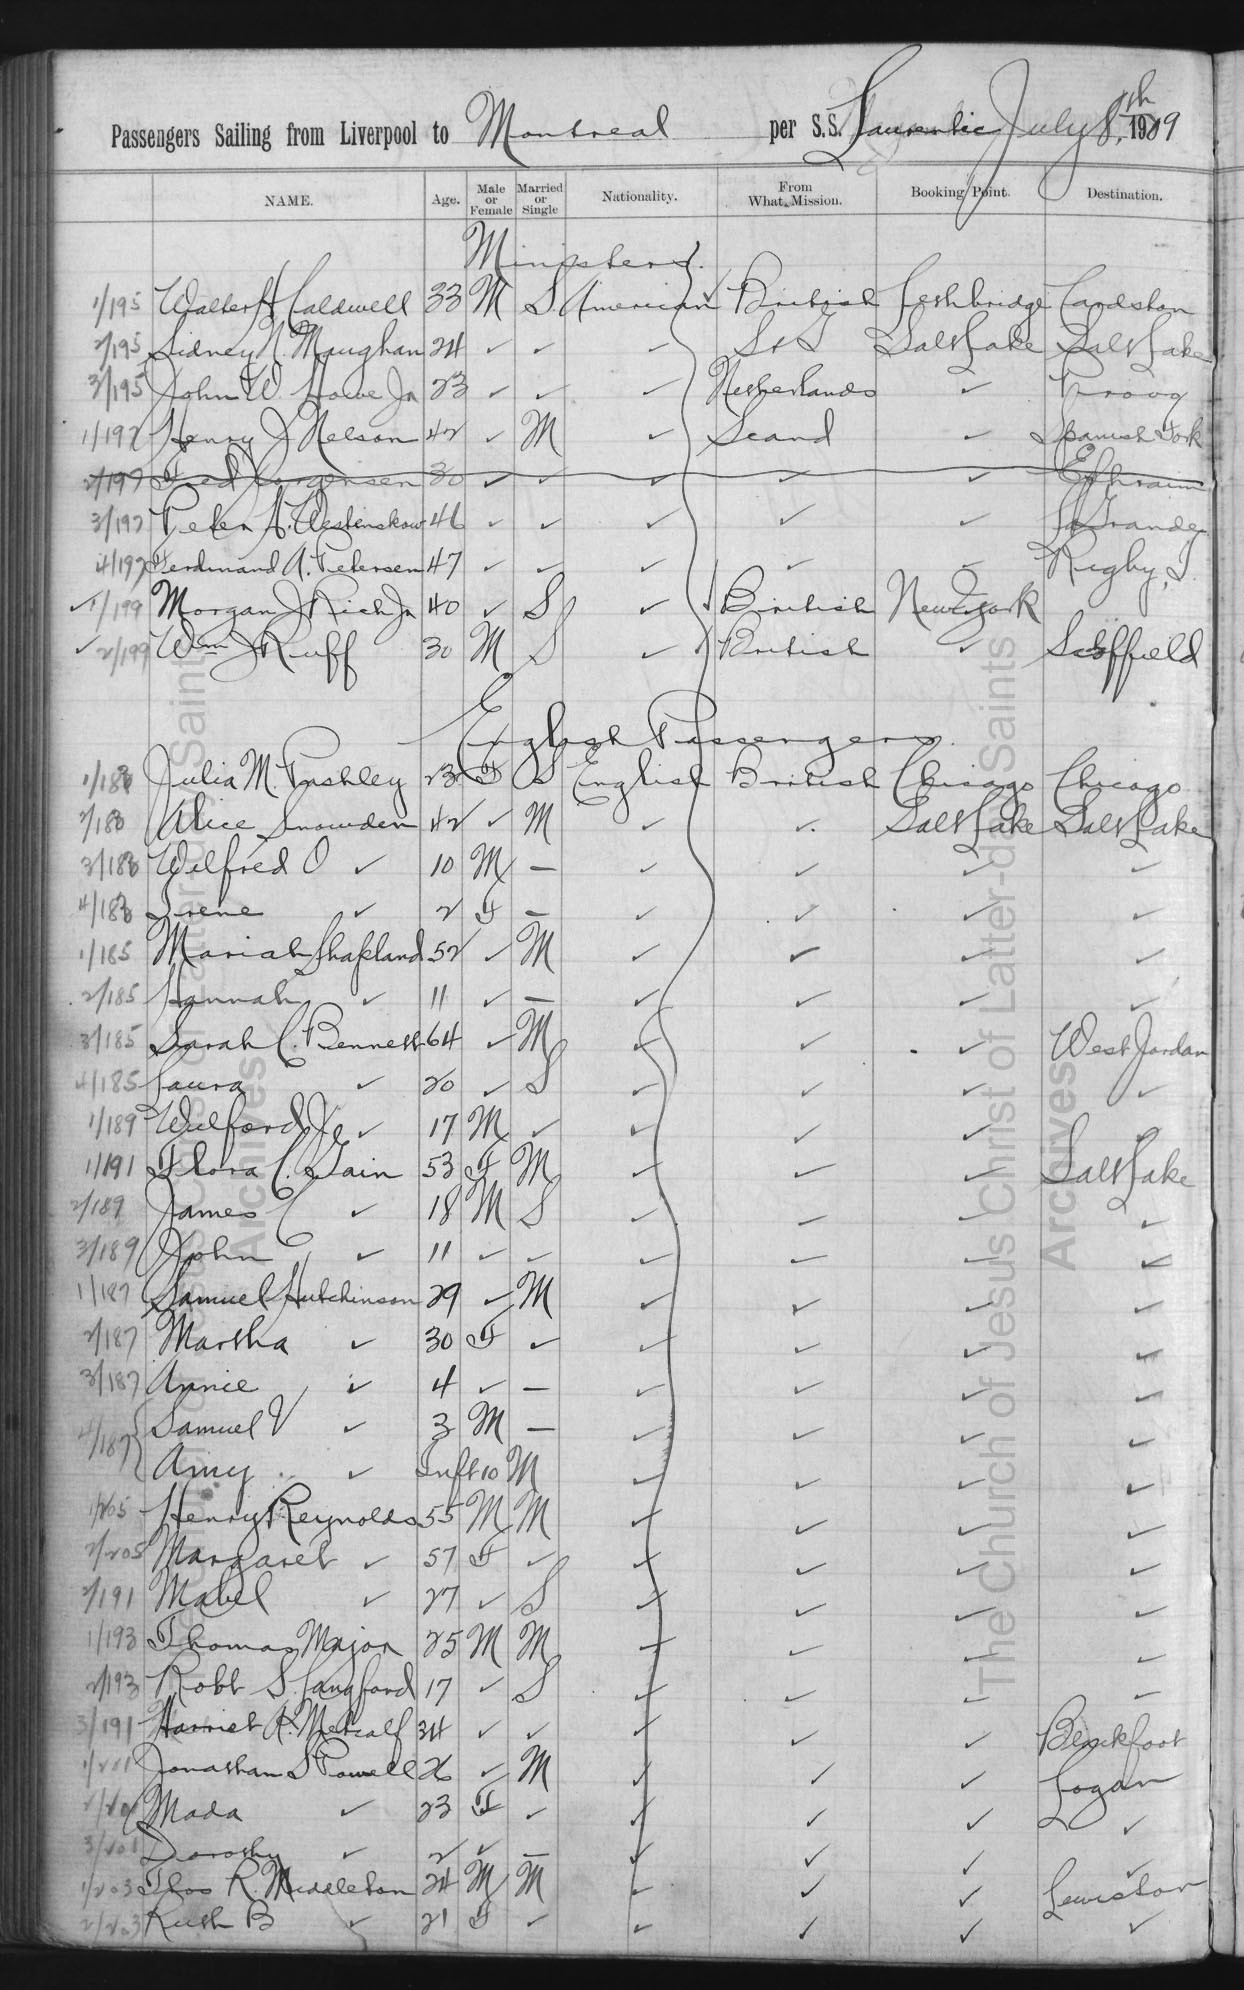 Passengers Sailing from Liverpool to Montreal per S.S. Laurentic July 8th, 1909
NAME. Age. Male or Female Married or Single Nationality. From What Mission. Booking Point. Destination.
Ministers.
1/195 Walter H Caldwell 33 M S American British Lethbridge Cardston
2/195 Sidney N. Maughan 24 ✓ ✓ ✓ S & G Salt Lake Salt Lake
3/195 John W. Howe Jr 23 ✓ ✓ ✓ Netherlands ✓ Provo
1/197 Henry J Nelson 42 ✓ M ✓ Scand ✓ Spanish Fork
2/197 Fred Jorgensen 30 ✓ ✓ ✓ ✓ ✓ Ephraim
3/197 Peter A. Westenskow 46 ✓ ✓ ✓ ✓ ✓ La Grande
4/197 Ferdinand A. Petersen 47 ✓ ✓ ✓ ✓ ✓ Rigby, I.
✓ 1/199 Morgan J Rich Jr 40 ✓ S ✓ British New York
✓ 2/199 Wm J Ruff 30 M S ✓ British ✓ Scoffield
English Passengers.
1/183 Julia M. Pashley 23 F S English British Chicago Chicago
2/183 Alice Snowden 42 ✓ M ✓ ✓ Salt Lake Salt Lake
3/183 Wilfred O ✓ 10 M — ✓ ✓ ✓ ✓
4/183 Irene ✓ 2 F — ✓ ✓ ✓ ✓
1/185 Mariah Shapland 52 ✓ M ✓ ✓ ✓ ✓
2/185 Hannah ✓ 11 ✓ — ✓ ✓ ✓ ✓
3/185 Sarah C. Bennett 64 ✓ M ✓ ✓ ✓ West Jordan
4/185 Laura ✓ 20 ✓ S ✓ ✓ ✓ ✓
1/189 Wilford J ✓ 17 M ✓ ✓ ✓ ✓ ✓
1/191 Flora C. Gain 53 F M ✓ ✓ ✓ Salt Lake
2/189 James C ✓ 18 M S ✓ ✓ ✓ ✓
3/189 John ✓ 11 ✓ ✓ ✓ ✓ ✓ ✓
1/187 Samuel Hutchinson 29 ✓ M ✓ ✓ ✓ ✓
2/187 Martha ✓ 30 F ✓ ✓ ✓ ✓ ✓
3/187 Annie ✓ 4 ✓ — ✓ ✓ ✓ ✓
4/187 Samuel V ✓ 3 M — ✓ ✓ ✓ ✓
Amy ✓ Inft 10 M ✓ ✓ ✓ ✓
1/205 Henry Reynolds 55 M M ✓ ✓ ✓ ✓
2/205 Margaret ✓ 57 F ✓ ✓ ✓ ✓ ✓
2/191 Mabel ✓ 27 ✓ S ✓ ✓ ✓ ✓
1/193 Thomas Major 25 M M ✓ ✓ ✓ ✓
2/193 Robt S. Langford 17 ✓ S ✓ ✓ ✓ ✓
3/191 Harriet A. Metcalf 34 ✓ ✓ ✓ ✓ ✓ Blackfoot
1/201 Jonathan S Powell 26 ✓ M ✓ ✓ ✓ Logan
2/201 Mada ✓ 23 F ✓ ✓ ✓ ✓ ✓
3/201 Dorothy ✓ 2 ✓ — ✓ ✓ ✓ ✓
1/203 Thos R. Middleton 24 M M ✓ ✓ ✓ Lewiston
2/203 Ruth B ✓ 21 F ✓ ✓ ✓ ✓ ✓
The Church of Jesus Christ of Latter-day Saints
Archives